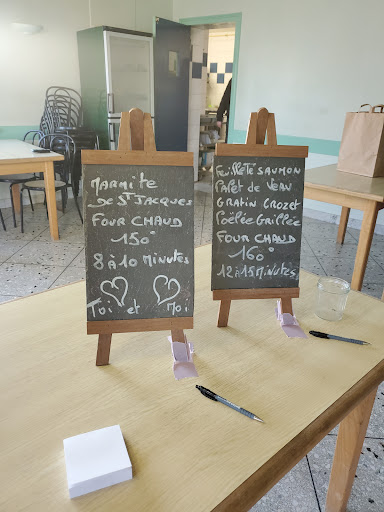 MARMITE
DE ST JACQUES
FOUR CHAUD
150°
8 à 10 MINUTES
Toi et Moi
FEUILLETÉ SAUMON
PAVET DE VEAU
GRATIN CROZET
POÊLÉE GRILLÉE
FOUR CHAUD
160°
12 à 15 MINUTES